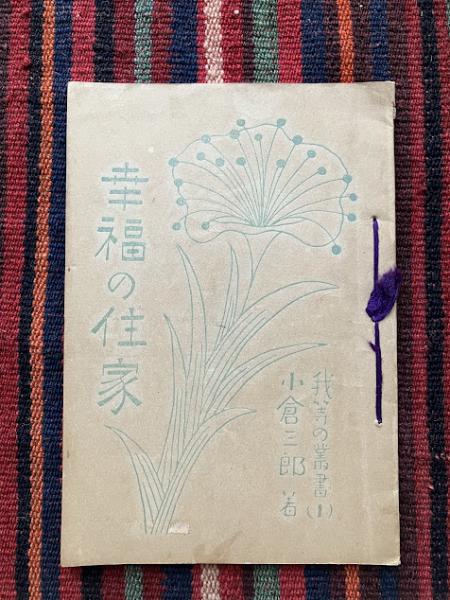 幸福の住家
我等の叢書(1)
小倉三郎 著